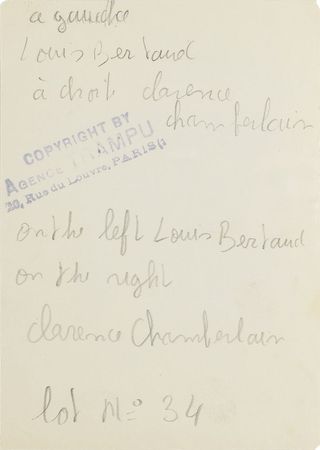 a gauche
Louis Bertaud
à droite clarence
chamberlain
COPYRIGHT BY
AGENCE TRAMPU
20, Rue du Louvre, PARIS
on the left Louis Bertaud
on the right
clarence Chamberlain
lot No 34